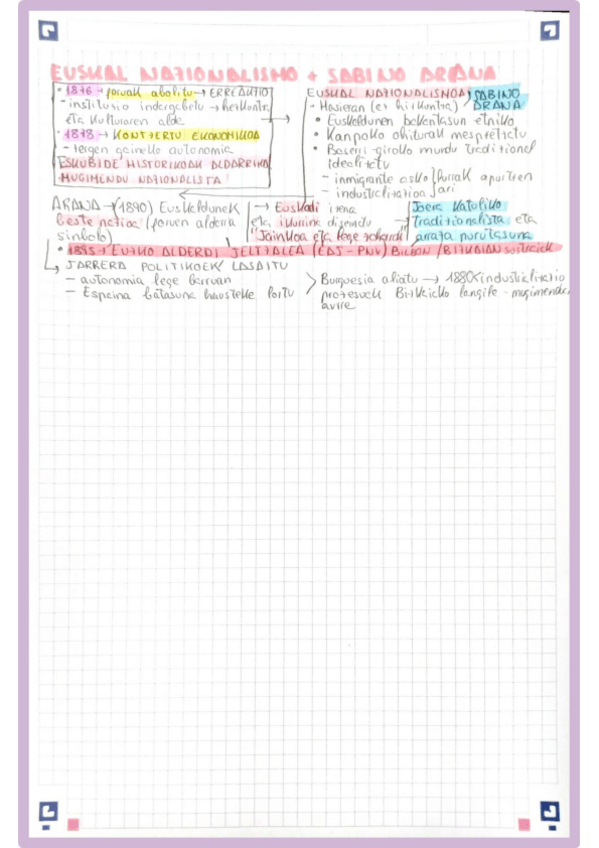 EUSKAL NAZIONALISMO + SABINO ARANA
• 1876 → foruak abolitu → ERREAKZIO
- instituzio indargabetu → hizkuntza
eta kulturaren alde
• 1878 → KONTZERTU EKONOMIKOA
- zergen gaineko autonomia
ESKUBIDE HISTORIKOAK ALDARRIKA
MUGIMENDU NAZIONALISTA
EUSKAL NAZIONALISMOA, SABINO
ARANA
- Hasieran (ez hizkuntza)
• Euskaldunen bakantasun etniko
• Kanpoko ohiturak mespretxatu
• Baserri-giroko mundu tradizional
idealizatu
- inmigrante asko
- industrializazioa
foruak apurtzen
ari
ARANA → (1890) Euskaldunek
beste nazioa (foruen aldarria
sinbolo)
→ Euskadi izena
eta ikurrina diseinatu
"Jainkoa eta lege zaharra"
Joera katoliko
tradizionalista eta
arraza purutasuna
• 1895 → EUZKO ALDERDI JELTZALEA (EAJ-PNV) BILBON/BIZKAIAN sustraiak
↳ JARRERA POLITIKOEK LASAITU
- autonomia lege barruan
- Espainia batasuna hausteke
Burguesia aliatu → 1880 industrializazio
prozesuek Bizkaiko langile-mugimendu
aurre